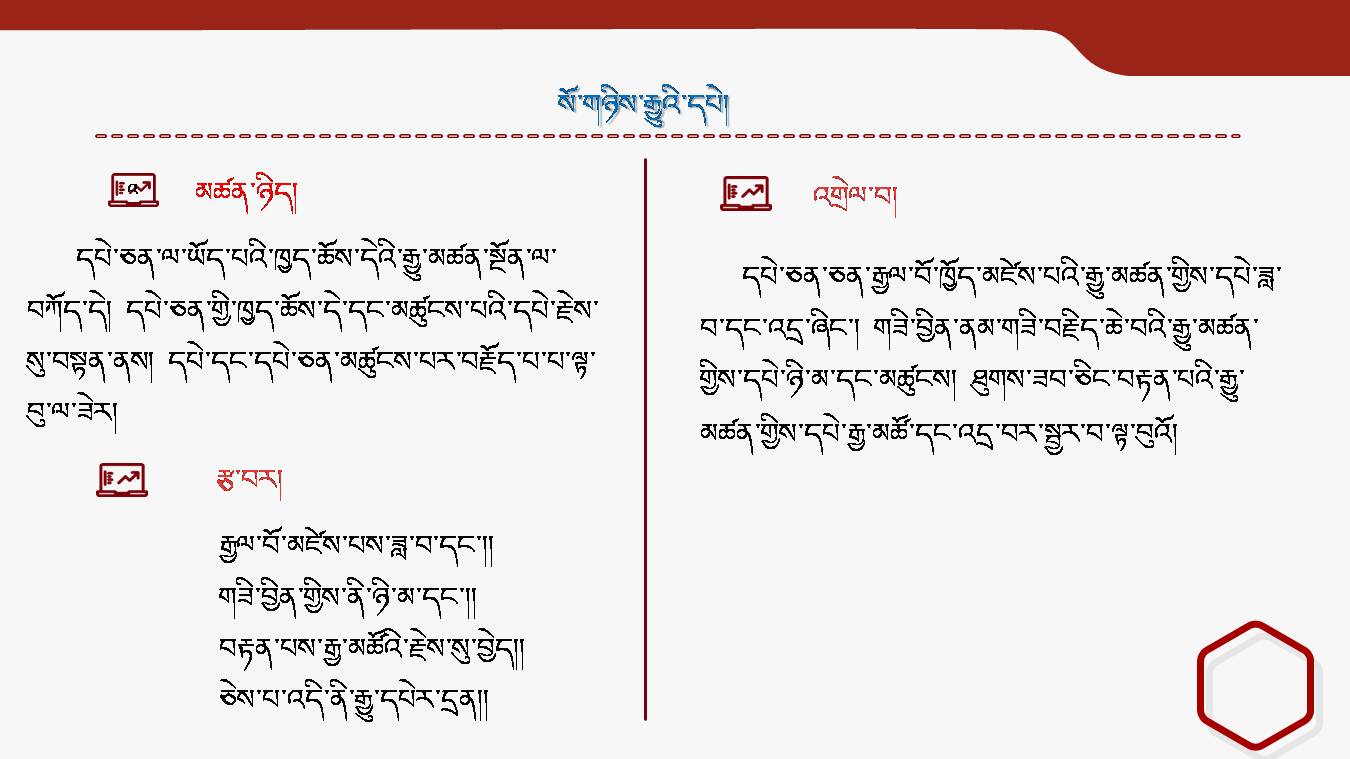 སོ་གཉིས་རྒྱུའི་དཔེ།
མཚན་ཉིད།
དཔེ་ཅན་ལ་ཡོད་པའི་ཁྱད་ཆོས་དེའི་རྒྱུ་མཚན་སྔོན་ལ་
བཀོད་དེ། དཔེ་ཅན་གྱི་ཁྱད་ཆོས་དེ་དང་མཚུངས་པའི་དཔེ་རྗེས་
སུ་བསྟན་ནས། དཔེ་དང་དཔེ་ཅན་མཚུངས་པར་བརྗོད་པ་པ་ལྟ་
བུ་ལ་ཟེར།
རྩ་བར།
རྒྱལ་པོ་མཛེས་པས་ཟླ་བ་དང་།།
གཟི་བྱིན་གྱིས་ནི་ཉི་མ་དང་།།
བརྟན་པས་རྒྱ་མཚོའི་རྗེས་སུ་བྱེད།།
ཅེས་པ་འདི་ནི་རྒྱུ་དཔེར་དྲན།།
འགྲེལ་བ།
དཔེ་ཅན་ཅན་རྒྱལ་པོ་ཁྱོད་མཛེས་པའི་རྒྱུ་མཚན་གྱིས་དཔེ་ཟླ་
བ་དང་འདྲ་ཞིང་། གཟི་བྱིན་ནམ་གཟི་བརྗིད་ཆེ་བའི་རྒྱུ་མཚན་
གྱིས་དཔེ་ཉི་མ་དང་མཚུངས། ཐུགས་ཟབ་ཅིང་བརྟན་པའི་རྒྱུ་
མཚན་གྱིས་དཔེ་རྒྱ་མཚོ་དང་འདྲ་བར་སྦྱར་བ་ལྟ་བུའོ།